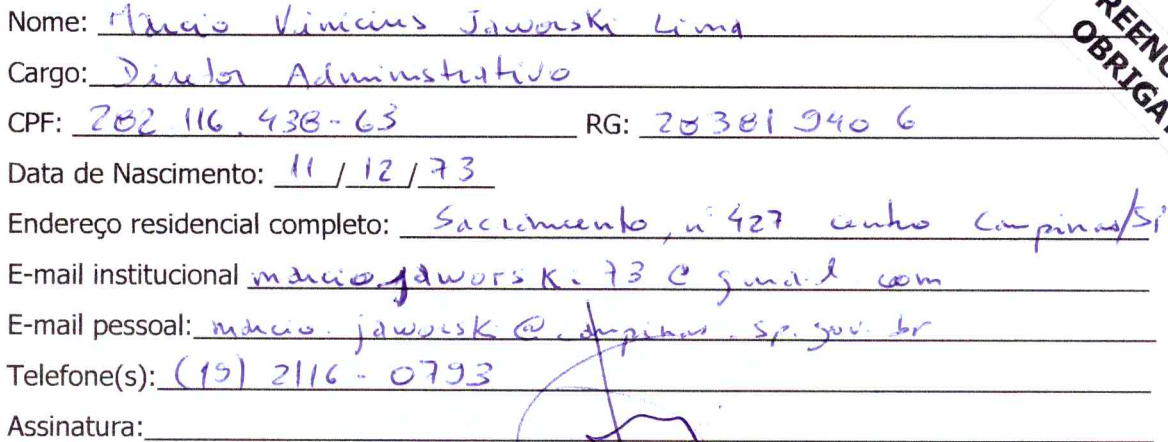 Nome: Márcio Vinicius Jaworski Lima
REENC
OBRIGAT
Cargo: Diretor Administrativo
CPF: 282.116.438-63 RG: 28381940 6
Data de Nascimento: 11 / 12 / 73
Endereço residencial completo: Sacramento, nº 427 centro Campinas/SP
E-mail institucional marcio.jaworski.73@gmail.com
E-mail pessoal: marcio.jaworski@campinas.sp.gov.br
Telefone(s): (19) 2116-0793
Assinatura: